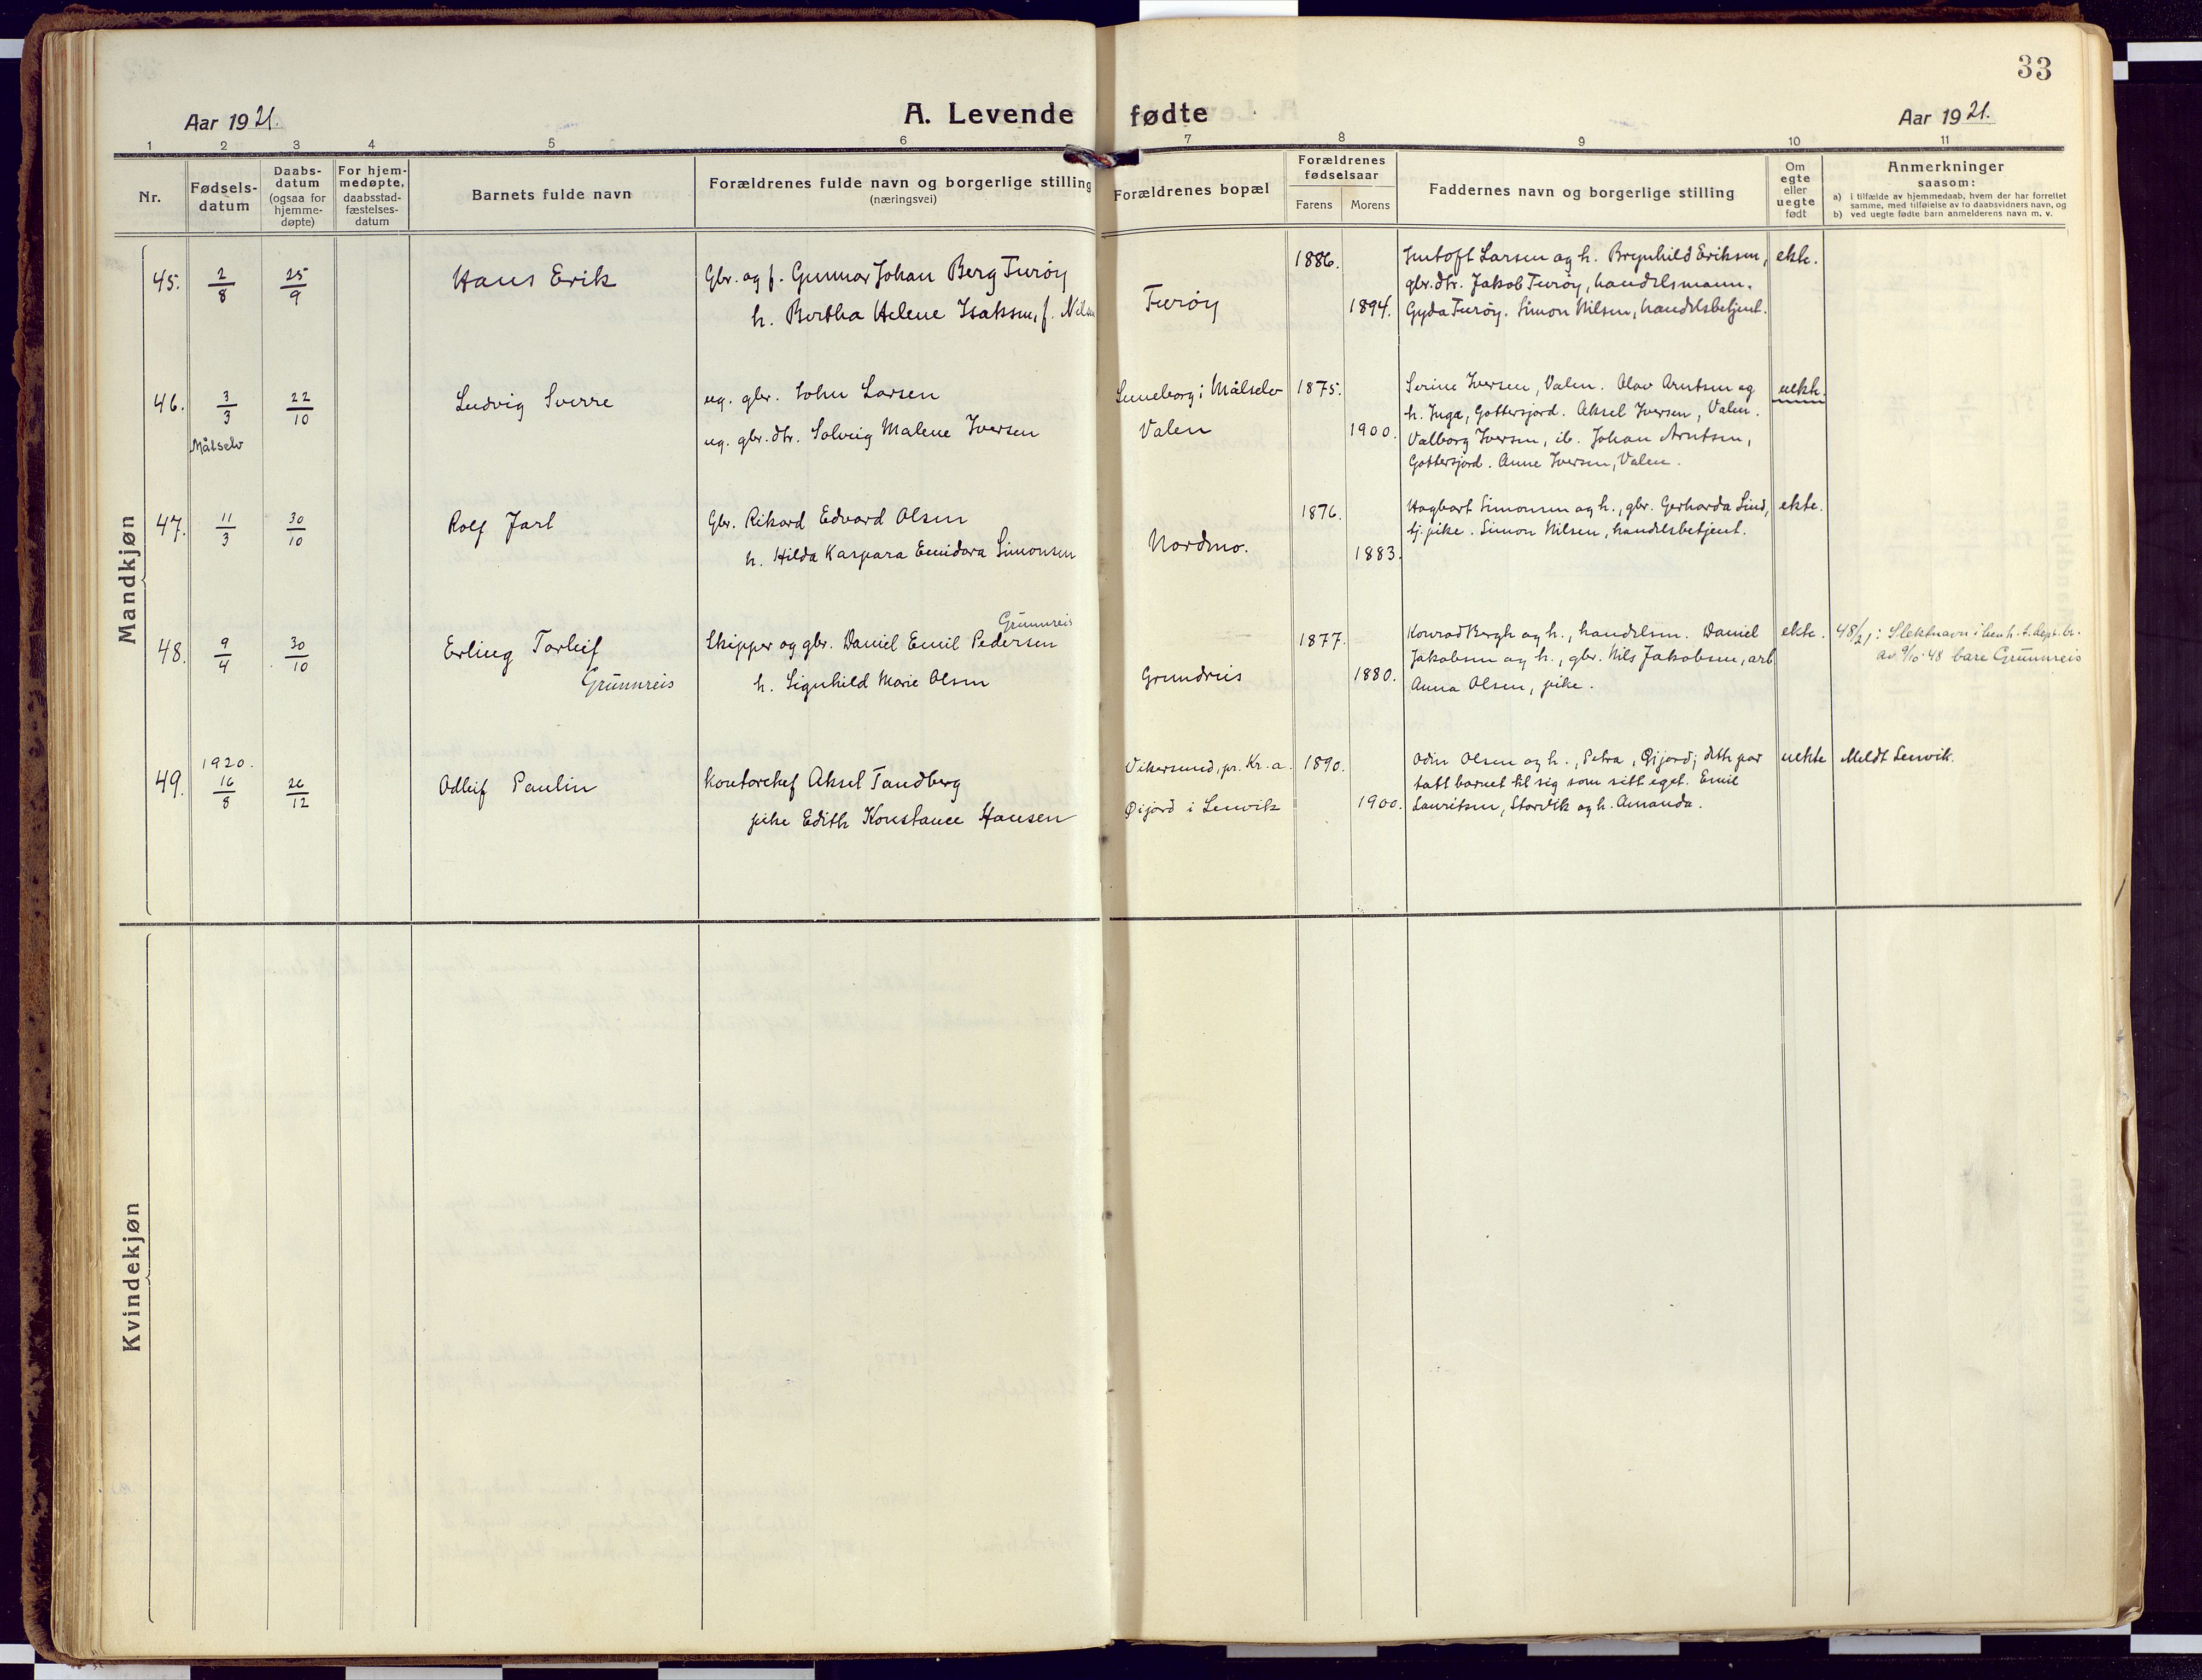 33
Aar 1921.
A. Levende fødte
Aar 1921.
1 2 3 4 5 6 7 8 9 10 11
Nr.
Fødsels-
datum
Daabs-
datum
(ogsaa for
hjemme-
døpte)
For hjem-
medøpte,
daabsstad-
fæstelses-
datum
Barnets fulde navn
Forældrenes fulde navn og borgerlige stilling
(næringsvei)
Forældrenes bopæl
Forældrenes
fødselsaar
Farens Morens
Faddernes navn og borgerlige stilling
Om
egte
eller
uegte
født
Anmerkninger
saasom:
a) i tilfælde av hjemmedaab, hvem der har forrettet
samme, med tilføielse av to daabsvidners navn, og
b) ved uegte fødte barn anmelderens navn m. v.
Mandkjøn
45.
2/8
25/9
Hans Erik
Gbr. og f. Gunnar Johan Berg Turøy
h. Bertha Helene Isaksen, f. Nilsen
Turøy
1886.
1894.
Larsen og h. Brynhild Eriksen,
gbr.dtr. Jakob Turøy, handelsmann.
Gyda Turøy. Simon Nilsen, handelsbetjent.
ekte.
46.
3/3
Målselv
22/10
Ludvig Sverre
ug. gbr. John Larsen
ug. gbr. dtr. Solveig Malene Iversen
i Målselv
Valen
1875.
1900.
Serine Iversen, Valen. Olav Arntsen og
h. Inga, Gottersjord. Aksel Iversen, Valen.
Valborg Iversen, ib. Johan Arntsen,
Gottersjord. Anne Iversen, Valen.
uekte.
47.
11/3
30/10
Rolf Jarl
Gbr. Rikard Edvard Olsen
h. Hilda Kaspara Emidora Simonsen
Nordmo.
1876.
1883.
Hagbart Simonsen og h., gbr. Gerharda Lind,
tj. pike. Simon Nilsen, handelsbetjent.
ekte.
48.
9/4
30/10
Erling Torleif
Grünnreis
Grünnreis
Skipper og gbr. Daniel Emil Pedersen
h. Signhild Marie Olsen
Grundreis
1877.
1880.
Konrad Bergh og h., handelsm. Daniel
Jakobsen og h., gbr. Nils Jakobsen, arb
Anna Olsen, pike.
ekte.
48/21: Slektnavn i henh. t. dept. br.
av 9/10-48 bare Grünnreis
49.
1920.
16/8
26/12
Odleif Paulin
Kontorchef Aksel Tandberg
pike Edith Konstance Hansen
Vikersund, pr. Kr.a.
Øijord i Lenvik
1890.
1900.
Odin Olsen og h., Petra, Øijord; dette par
tatt barnet til sig som sitt eget. Emil
Lauritsen, Storvik og h. Amanda.
uekte
Meldt Lenvik.
Kvindekjøn